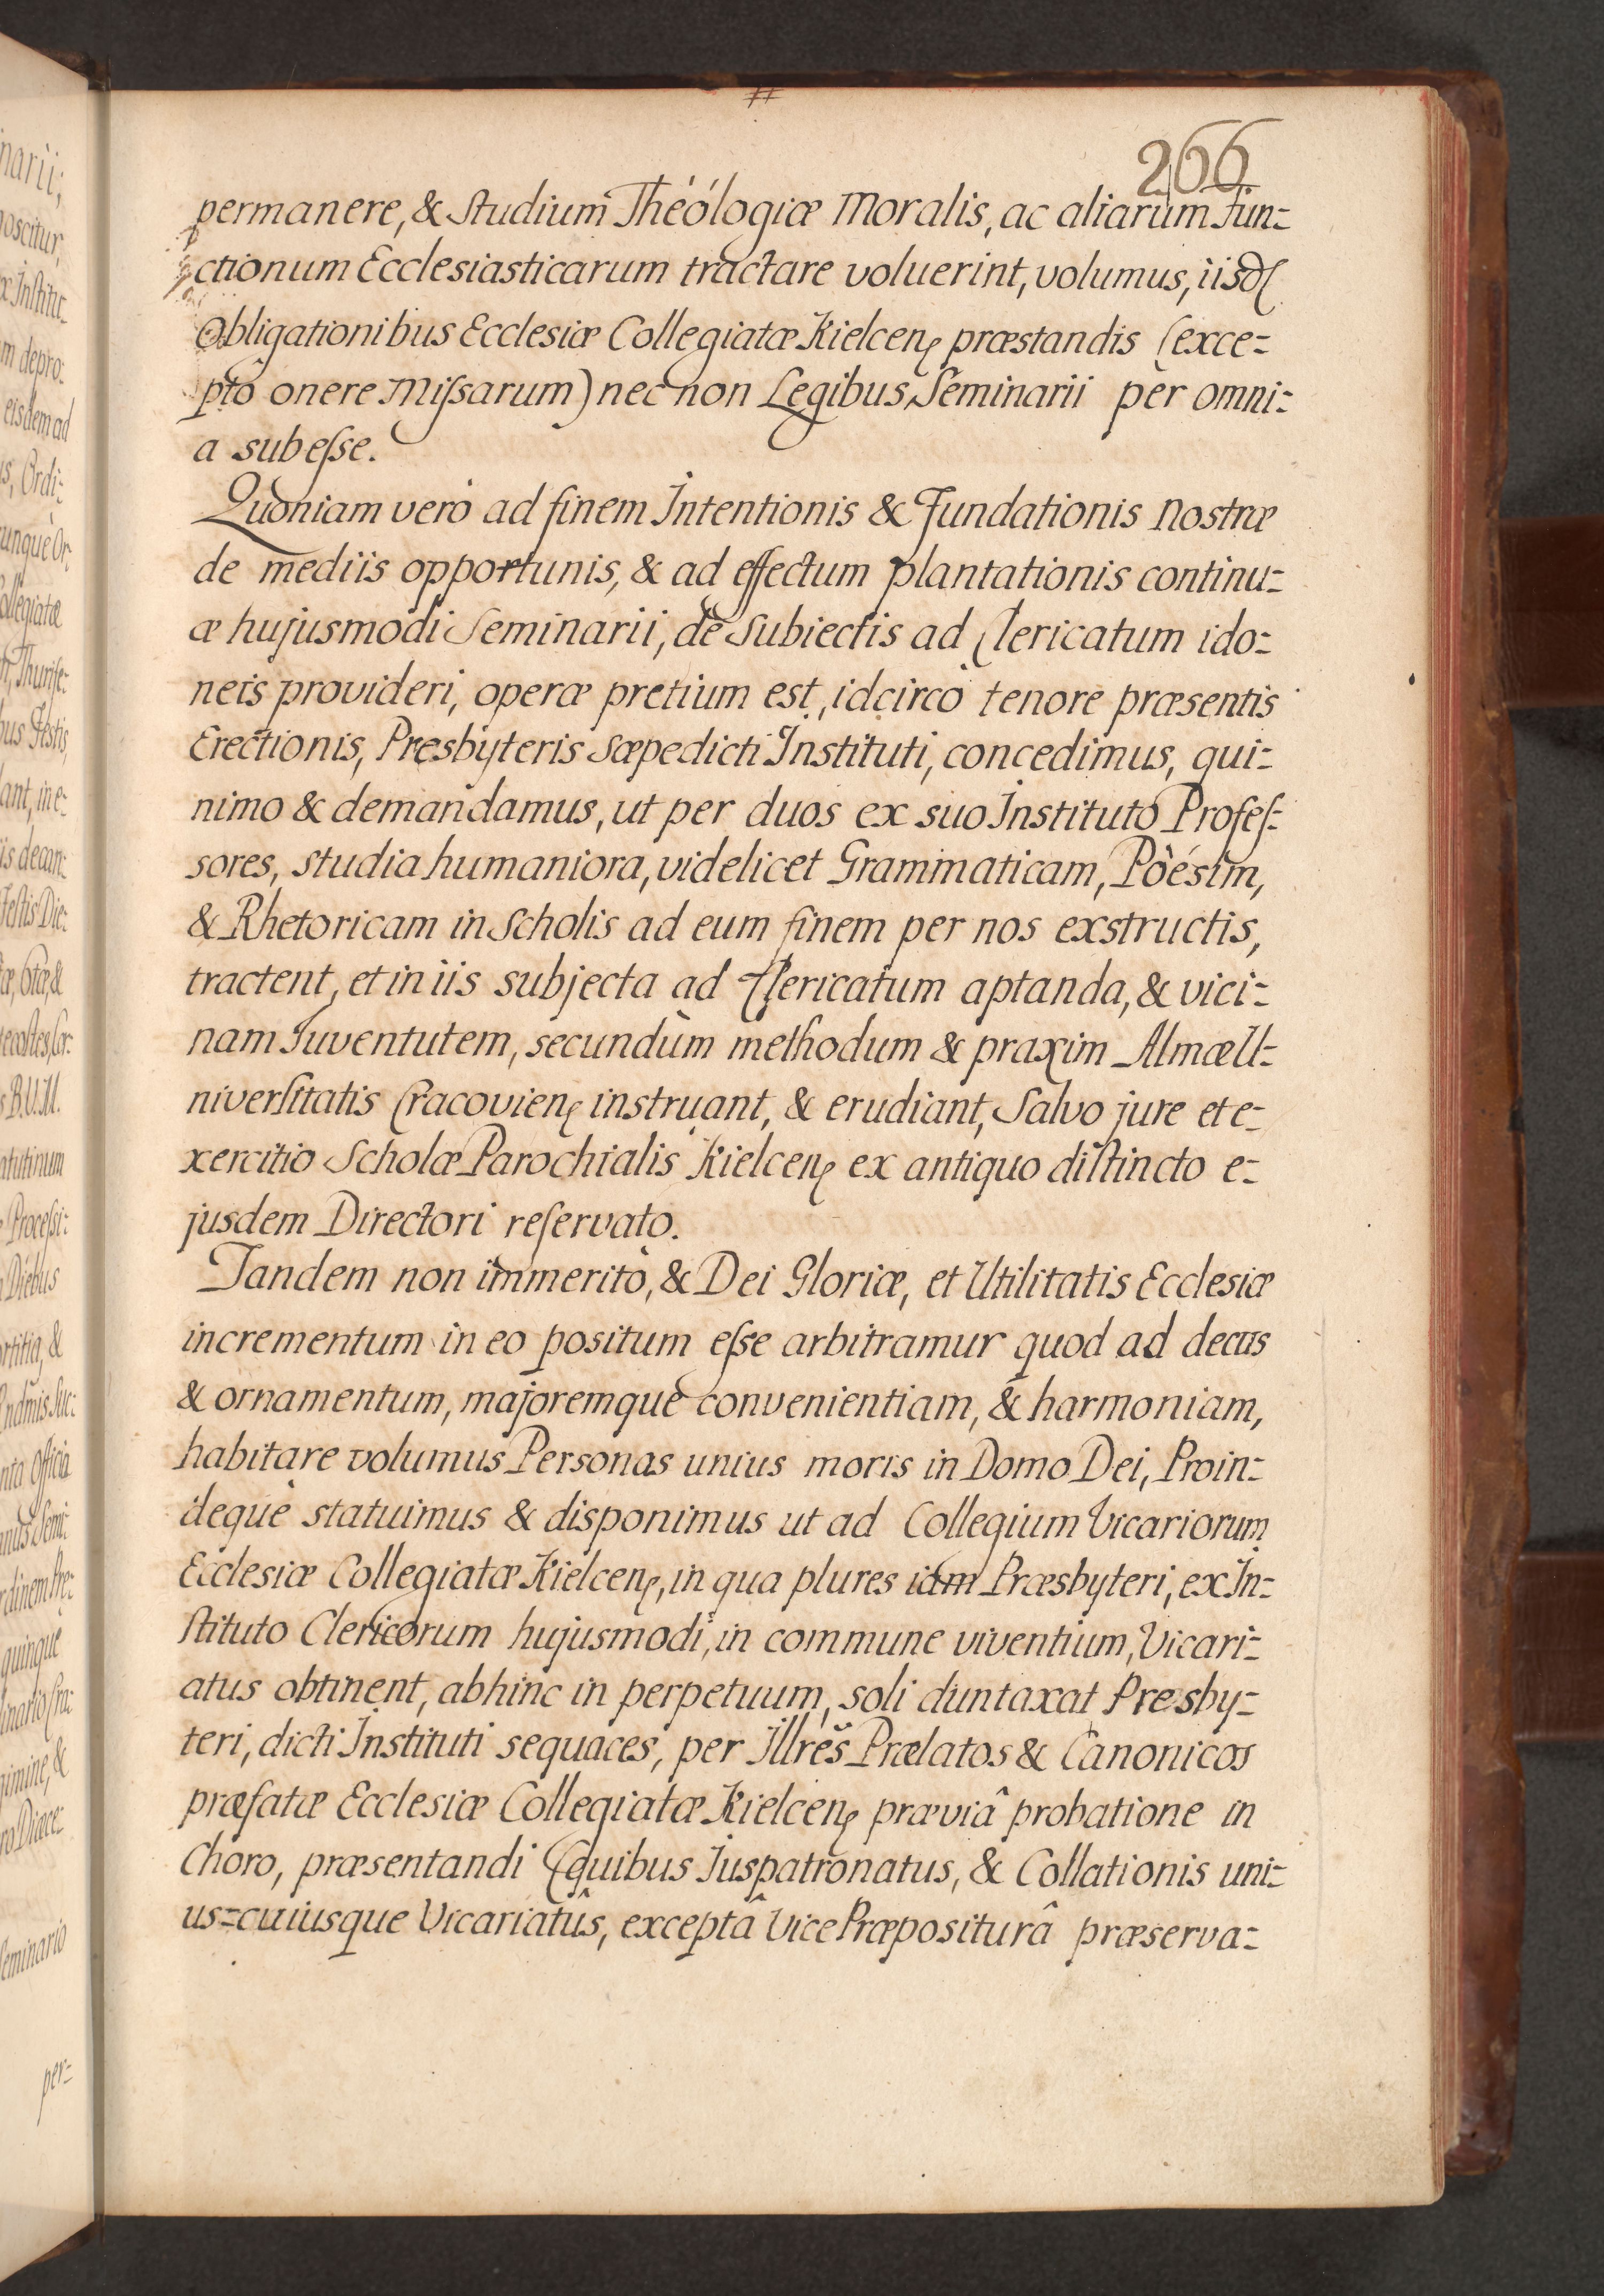 266
permanere, & Studium Théólogiæ Moralis, ac aliarum Fun=
ctionum Ecclesiasticarum tractare voluerint, volumus, iisd
Obligationibus Ecclesiæ Collegiatæ Kielcen præstandis (exce=
pto onere Mißarum) nec non Legibus Seminarii per omni=
a subeſse.
Quoniam verò ad finem Intentionis & Fundationis Nostræ
de mediis opportunis, & ad effectum plantationis continu=
æ hujusmodi Seminarii, de Subiectis ad Clericatum ido=
neis provideri, operæ pretium est, idcircò tenore præsentis
Erectionis, Presbyteris Sæpedicti Instituti, concedimus, qui=
nimo & demandamus, ut per duos ex suo Instituto Profeſ=
sores, studia humaniora, videlicet Grammaticam, Poésim,
& Rhetoricam in Scholis ad eum finem per nos exstructis,
tractent, et in iis subjecta ad Clericatum aptanda, & vici=
nam Iuventutem, secundùm methodum & praxim Almæ U=
niverſitatis Cracovien instruant, & erudiant, Salvo jure et e=
xercitio Scholæ Parochialis Kielcen ex antiquo diſtincto e=
jusdem Directori reſervato.
Tandem non immeritò, & Dei Gloriæ, et Utilitatis Ecclesiæ
incrementum in eo positum eſse arbitramur quod ad decus
& ornamentum, majoremque convenientiam, & harmoniam,
habitare volumus Personas unius moris in Domo Dei, Proin=
dequè statuimus & disponimus ut ad Collegium Vicariorum
Ecclesiæ Collegiatæ Kielcen, in qua plures iam Præsbyteri, ex In=
ſtituto Clericorum hujusmodi, in commune viventium, Vicari=
atus obtinent, abhinc in perpetuum, soli duntaxat Presby=
teri, dicti Instituti sequaces, per Illres Prælatos & Canonicos
præfatæ Ecclesiæ Collegiatæ Kielcen præviâ probatione in
Choro, præsentandi (quibus Iuspatronatus, & Collationis uni=
us=cuiusque Vicariatûs, exceptâ Vice Præpositurâ præserva=